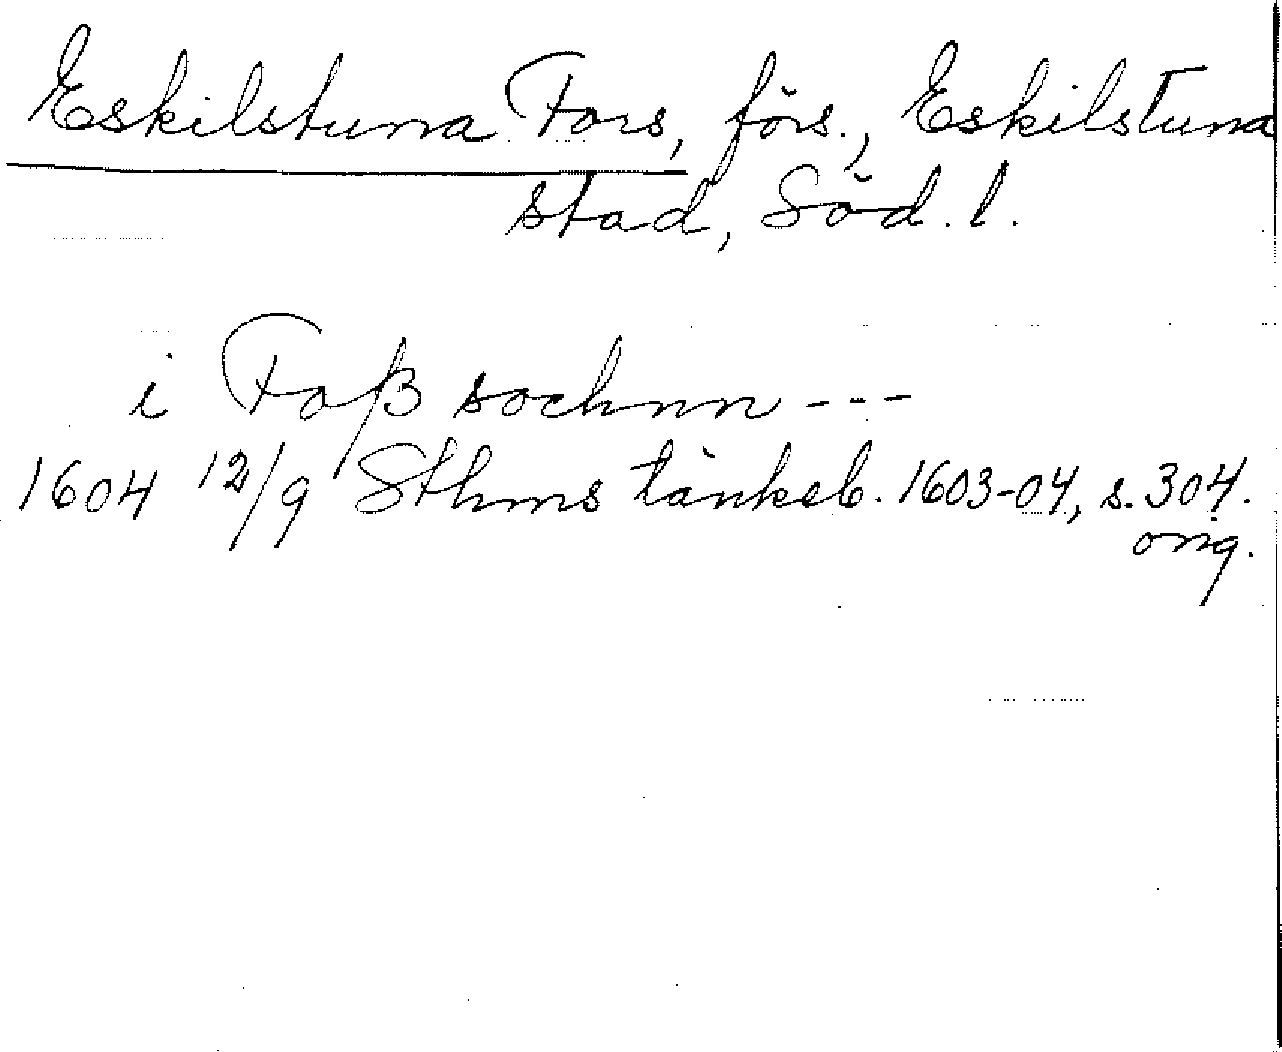 Eskilstuna Fors, förs., Eskilstuna
stad, Söd. l.
i Foß sochnn ---
1604 12/9 Sthms tänkeb. 1603-04, s. 304.
orig.